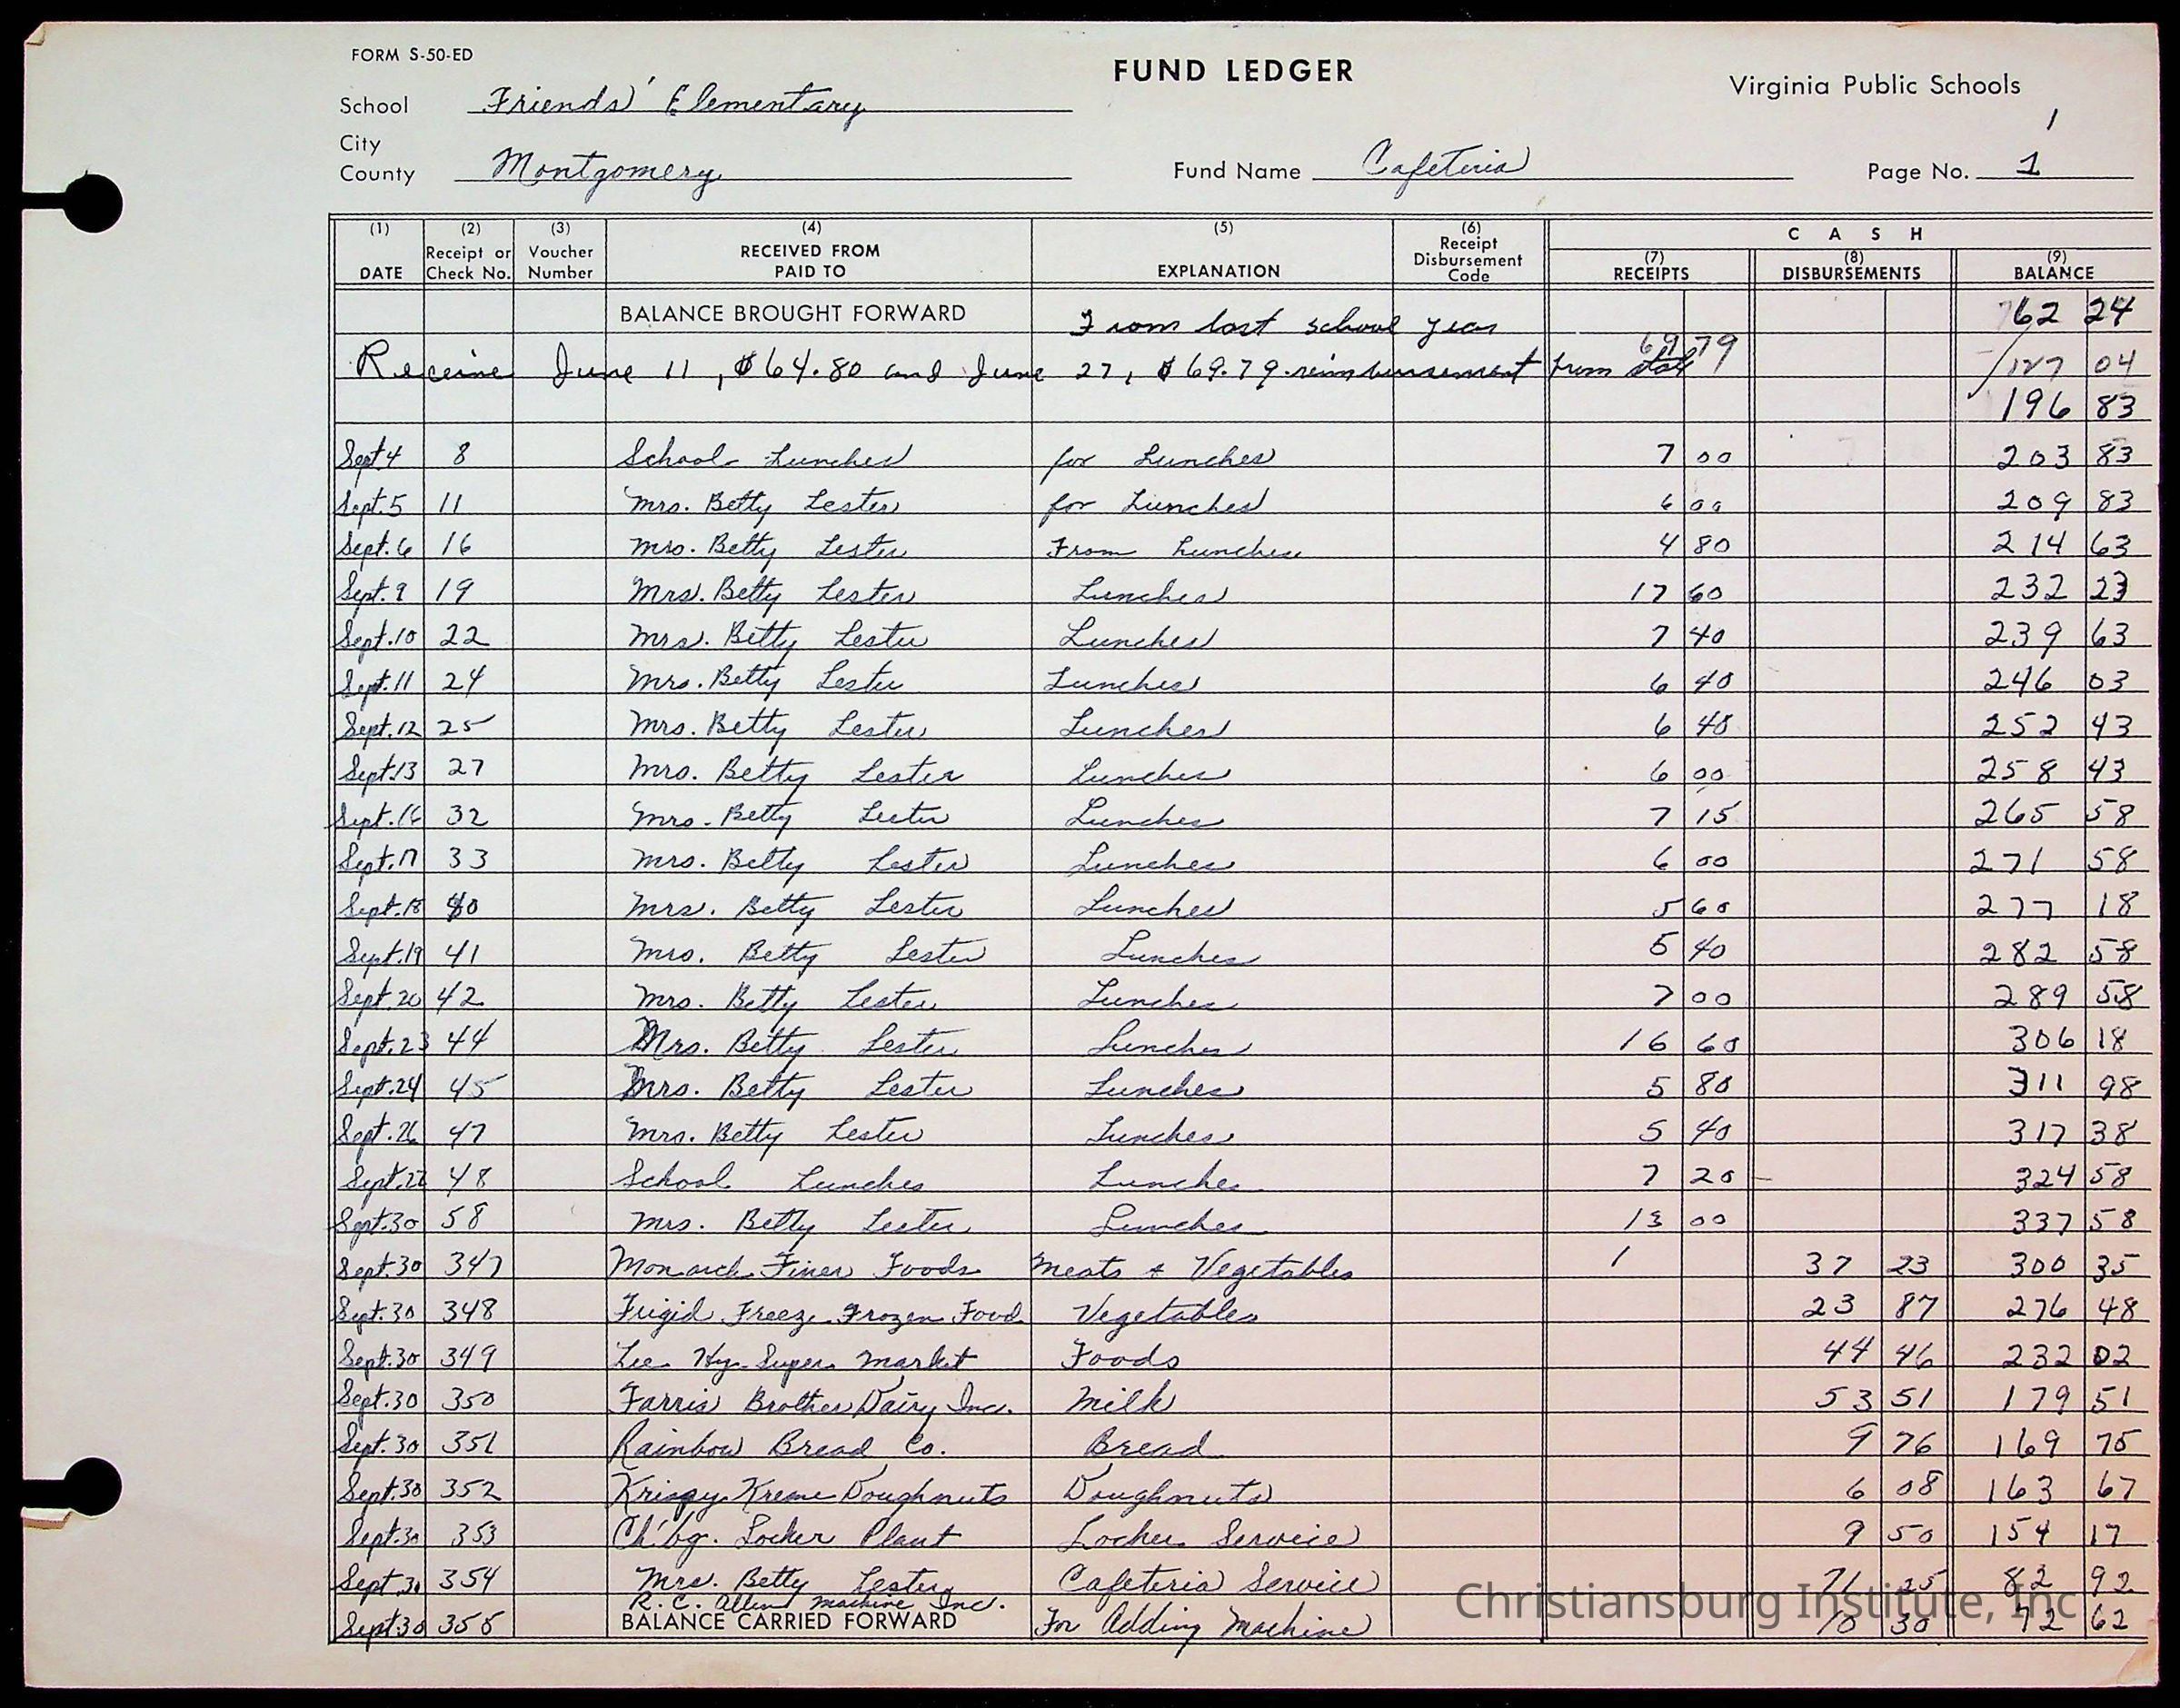 FORM S-50-ED
FUND LEDGER
Virginia Public Schools
School Friends' Elementary
1
City
County Montgomery Fund Name Cafeteria Page No. 1
(1) (2) (3) (4) (5) (6) C A S H
DATE Receipt or Check No. Voucher Number RECEIVED FROM PAID TO EXPLANATION Receipt Disbursement Code (7) RECEIPTS (8) DISBURSEMENTS (9) BALANCE
BALANCE BROUGHT FORWARD From last school year 62 24
69 79
Receive June 11, $64.80 and June 27, $69.79 reimbursement from state 127 04
196 83
Sept 4 8 School Lunches for Lunches 7 00 203 83
Sept. 5 11 Mrs. Betty Lester for Lunches 6 00 209 83
Sept. 6 16 Mrs. Betty Lester From Lunches 4 80 214 63
Sept. 9 19 Mrs. Betty Lester Lunches 17 60 232 23
Sept. 10 22 Mrs. Betty Lester Lunches 7 40 239 63
Sept. 11 24 Mrs. Betty Lester Lunches 6 40 246 03
Sept. 12 25 Mrs. Betty Lester Lunches 6 40 252 43
Sept. 13 27 Mrs. Betty Lester Lunches 6 00 258 43
Sept. 16 32 Mrs. Betty Lester Lunches 7 15 265 58
Sept. 17 33 Mrs. Betty Lester Lunches 6 00 271 58
Sept. 18 40 Mrs. Betty Lester Lunches 5 60 277 18
Sept. 19 41 Mrs. Betty Lester Lunches 5 40 282 58
Sept 20 42 Mrs. Betty Lester Lunches 7 00 289 58
Sept. 23 44 Mrs. Betty Lester Lunches 16 60 306 18
Sept. 24 45 Mrs. Betty Lester Lunches 5 80 311 98
Sept. 26 47 Mrs. Betty Lester Lunches 5 40 317 38
Sept. 27 48 School Lunches Lunches 7 20 324 58
Sept. 30 58 Mrs. Betty Lester Lunches 13 00 337 58
Sept. 30 347 Monarch Finer Foods Meats & Vegetables 1 37 23 300 35
Sept. 30 348 Frigid Freeze Frozen Food Vegetables 23 87 276 48
Sept. 30 349 Lee Hy. Super Market Foods 44 46 232 02
Sept. 30 350 Farris Brother Dairy Inc. Milk 53 51 179 51
Sept. 30 351 Rainbow Bread Co. Bread 9 76 169 75
Sept. 30 352 Krispy Kreme Doughnuts Doughnuts 6 08 163 67
Sept. 30 353 Ch'bg. Locker Plant Locker Service 9 50 154 17
Sept. 30 354 Mrs. Betty Lester Cafeteria Service 71 25 82 92
R. C. Allen Machine Inc.
Sept 30 355 BALANCE CARRIED FORWARD For Adding Machine 10 30 72 62
Christiansburg Institute, Inc